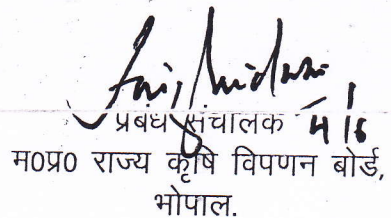 प्रबंध संचालक 4/6
म0प्र0 राज्य कृषि विपणन बोर्ड,
भोपाल.